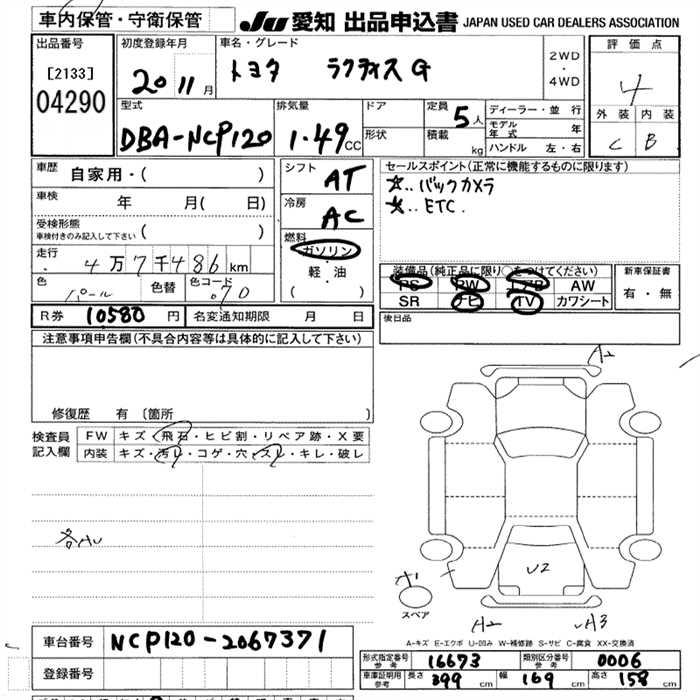 車内保管・守衛保管
JU 愛知 出品申込書 JAPAN USED CAR DEALERS ASSOCIATION
出品番号
[2133]
04290
初度登録年月
20 11月
車名・グレード
トヨタ ラクティスG
2WD
・
4WD
評価点
4
外装 内装
C B
型式
DBA-NCP120
排気量
1.49CC
ドア
形状
定員
5人
積載
kg
ディーラー・並 行
モデル年式 年
ハンドル 左・右
車歴
自家用・( )
車検
年 月( 日)
受検形態
車検付きのみ記入して下さい ( )
走行
4万7千486km
色
パール
色替
色コード
070
シフト
AT
冷房
AC
燃料
ガソリン
・
軽・油
( )
セールスポイント(正常に機能するものに限ります)
☆..バックカメラ
☆..ETC.
装備品(純正品に限り○をつけてください)
PS PW エアB AW
SR ナビ TV カワシート
新車保証書
有・無
R券 10580円
名変通知期限 月 日
後日品
注意事項申告欄(不具合内容等は具体的に記入して下さい)
修復歴 有〔箇所 〕
検査員
記入欄
FW キズ・飛石・ヒビ割・リペア跡・X要
内装 キズ・汚レ・コゲ・穴・スレ・キレ・破レ
各AU
A2
U2
A1
スペア
A2
A3
A-キズ E-エクボ U-凹み W-補修跡 S-サビ C-腐食 XX-交換済
車台番号 NCP120-2067371
登録番号
形式指定番号
参考
16673
類別区分番号
参考
0006
車庫証明用
参考
長さ 399cm
幅 169cm
高さ 158cm